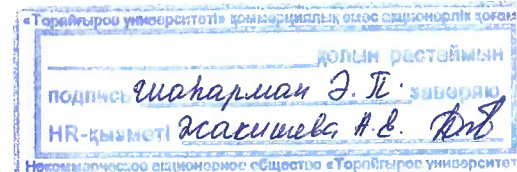 «Торайғыров университеті» коммерциялық емес акционерлік қоғам
қолын растаймын
подпись Шапарман Э. П. заверяю
HR-қызметі Жакишева А. Е.
Некоммерческое акционерное общество «Торайғыров университет